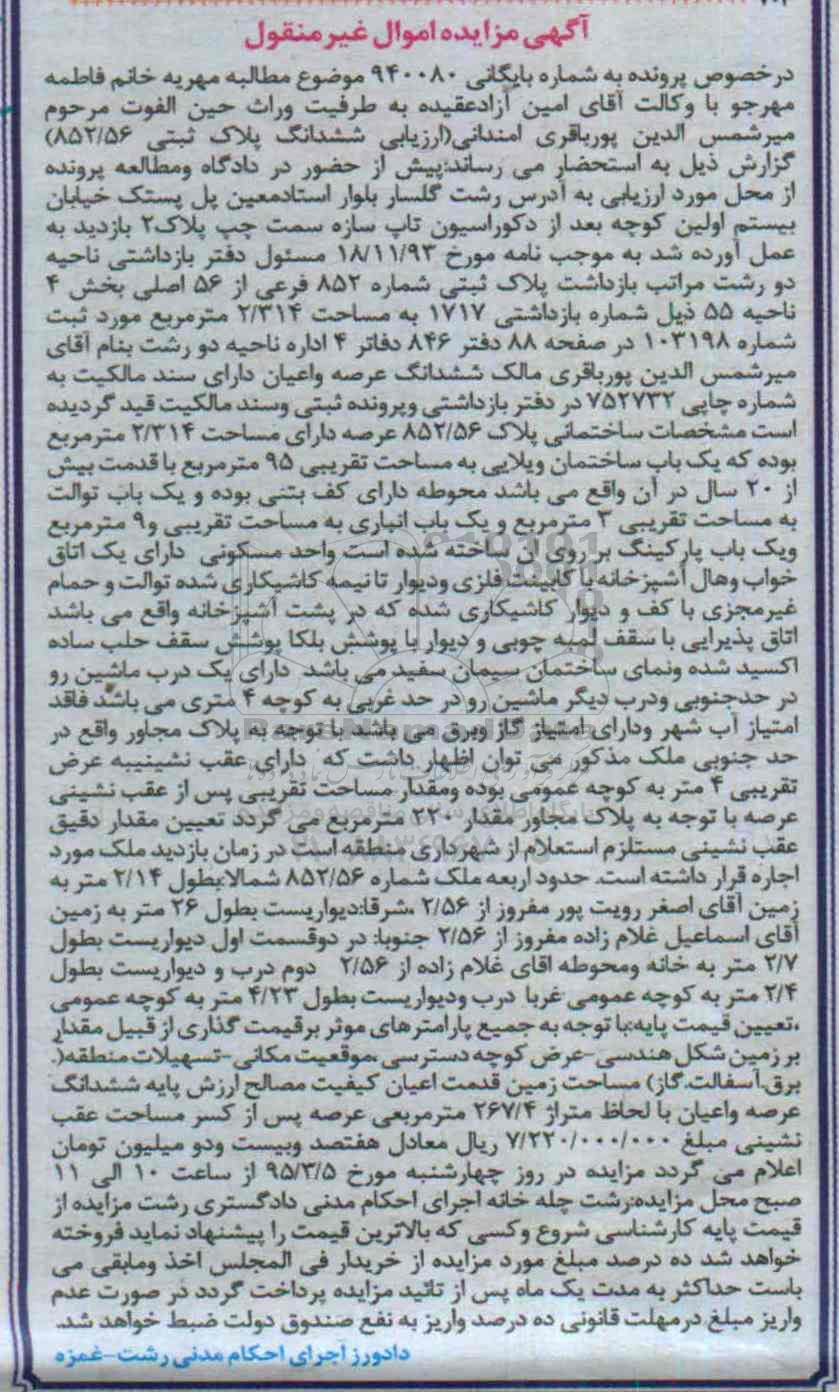 آگهی مزایده اموال غیر منقول
درخصوص پرونده به شماره بایگانی ۹۴۰۰۸۰ موضوع مطالبه مهریه خانم فاطمه
مهرجو با وکالت آقای امین آزادعقیده به طرفیت وراث حین الفوت مرحوم
میرشمس الدین پورباقری امندانی(ارزیابی ششدانگ پلاک ثبتی ۸۵۲/۵۶)
گزارش ذیل به استحضار می رساند:پیش از حضور در دادگاه ومطالعه پرونده
از محل مورد ارزیابی به آدرس رشت گلسار بلوار استادمعین پل پستک خیابان
بیستم اولین کوچه بعد از دکوراسیون تاپ سازه سمت چپ پلاک۲ بازدید به
عمل آورده شد به موجب نامه مورخ ۱۸/۱۱/۹۳ مسئول دفتر بازداشتی ناحیه
دو رشت مراتب بازداشت پلاک ثبتی شماره ۸۵۲ فرعی از ۵۶ اصلی بخش ۴
ناحیه ۵۵ ذیل شماره بازداشتی ۱۷۱۷ به مساحت ۲/۳۱۴ مترمربع مورد ثبت
شماره ۱۰۳۱۹۸ در صفحه ۸۸ دفتر ۸۴۶ دفاتر ۴ اداره ناحیه دو رشت بنام آقای
میرشمس الدین پورباقری مالک ششدانگ عرصه واعیان دارای سند مالکیت به
شماره چاپی ۷۵۲۷۳۲ در دفتر بازداشتی وپرونده ثبتی وسند مالکیت قید گردیده
است مشخصات ساختمانی پلاک ۸۵۲/۵۶ عرصه دارای مساحت ۲/۳۱۴ مترمربع
بوده که یک باب ساختمان ویلایی به مساحت تقریبی ۹۵ مترمربع با قدمت بیش
از ۲۰ سال در آن واقع می باشد محوطه دارای کف بتنی بوده و یک باب توالت
به مساحت تقریبی ۳ مترمربع و یک باب انباری به مساحت تقریبی و۹ مترمربع
ویک باب پارکینگ بر روی ان ساخته شده است واحد مسکونی دارای یک اتاق
خواب وهال آشپزخانه با کابینت فلزی ودیوار تا نیمه کاشیکاری شده توالت و حمام
غیرمجزی با کف و دیوار کاشیکاری شده که در پشت آشپزخانه واقع می باشد
اتاق پذیرایی با سقف لمبه چوبی و دیوار با پوشش بلکا پوشش سقف حلب ساده
اکسید شده ونمای ساختمان سیمان سفید می باشد دارای یک درب ماشین رو
در حدجنوبی ودرب دیگر ماشین رو در حد غربی به کوچه ۴ متری می باشد فاقد
امتیاز آب شهر ودارای امتیاز گاز وبرق می باشد با توجه به پلاک مجاور واقع در
حد جنوبی ملک مذکور می توان اظهار داشت که دارای عقب نشینیبه عرض
تقریبی ۴ متر به کوچه عمومی بوده ومقدار مساحت تقریبی پس از عقب نشینی
عرصه با توجه به پلاک مجاور مقدار ۲۲۰ مترمربع می گردد تعیین مقدار دقیق
عقب نشینی مستلزم استعلام از شهرداری منطقه است در زمان بازدید ملک مورد
اجاره قرار داشته است. حدود اربعه ملک شماره ۸۵۲/۵۶ شمالا:بطول ۲/۱۴ متر به
زمین آقای اصغر رویت پور مفروز از ۲/۵۶ ،شرقا:دیواریست بطول ۲۶ متر به زمین
آقای اسماعیل غلام زاده مفروز از ۲/۵۶ جنوبا: در دوقسمت اول دیواریست بطول
۲/۷ متر به خانه ومحوطه اقای غلام زاده از ۲/۵۶ دوم درب و دیواریست بطول
۲/۴ متر به کوچه عمومی غربا درب ودیواریست بطول ۴/۲۳ متر به کوچه عمومی
،تعیین قیمت پایه:با توجه به جمیع پارامترهای موثر برقیمت گذاری از قبیل مقدار
بر زمین شکل هندسی-عرض کوچه دسترسی ،موقعیت مکانی-تسهیلات منطقه(.
برق.آسفالت.گاز) مساحت زمین قدمت اعیان کیفیت مصالح ارزش پایه ششدانگ
عرصه واعیان با لحاظ متراژ ۲۶۷/۴ مترمربعی عرصه پس از کسر مساحت عقب
نشینی مبلغ ۷/۲۲۰/۰۰۰/۰۰۰ ریال معادل هفتصد وبیست ودو میلیون تومان
اعلام می گردد مزایده در روز چهارشنبه مورخ ۹۵/۳/۵ از ساعت ۱۰ الی ۱۱
صبح محل مزایده:رشت چله خانه اجرای احکام مدنی دادگستری رشت مزایده از
قیمت پایه کارشناسی شروع وکسی که بالاترین قیمت را پیشنهاد نماید فروخته
خواهد شد ده درصد مبلغ مورد مزایده از خریدار فی المجلس اخذ ومابقی می
باست حداکثر به مدت یک ماه پس از تائید مزایده پرداخت گردد در صورت عدم
واریز مبلغ درمهلت قانونی ده درصد واریز به نفع صندوق دولت ضبط خواهد شد.
دادورز اجرای احکام مدنی رشت-غمزه